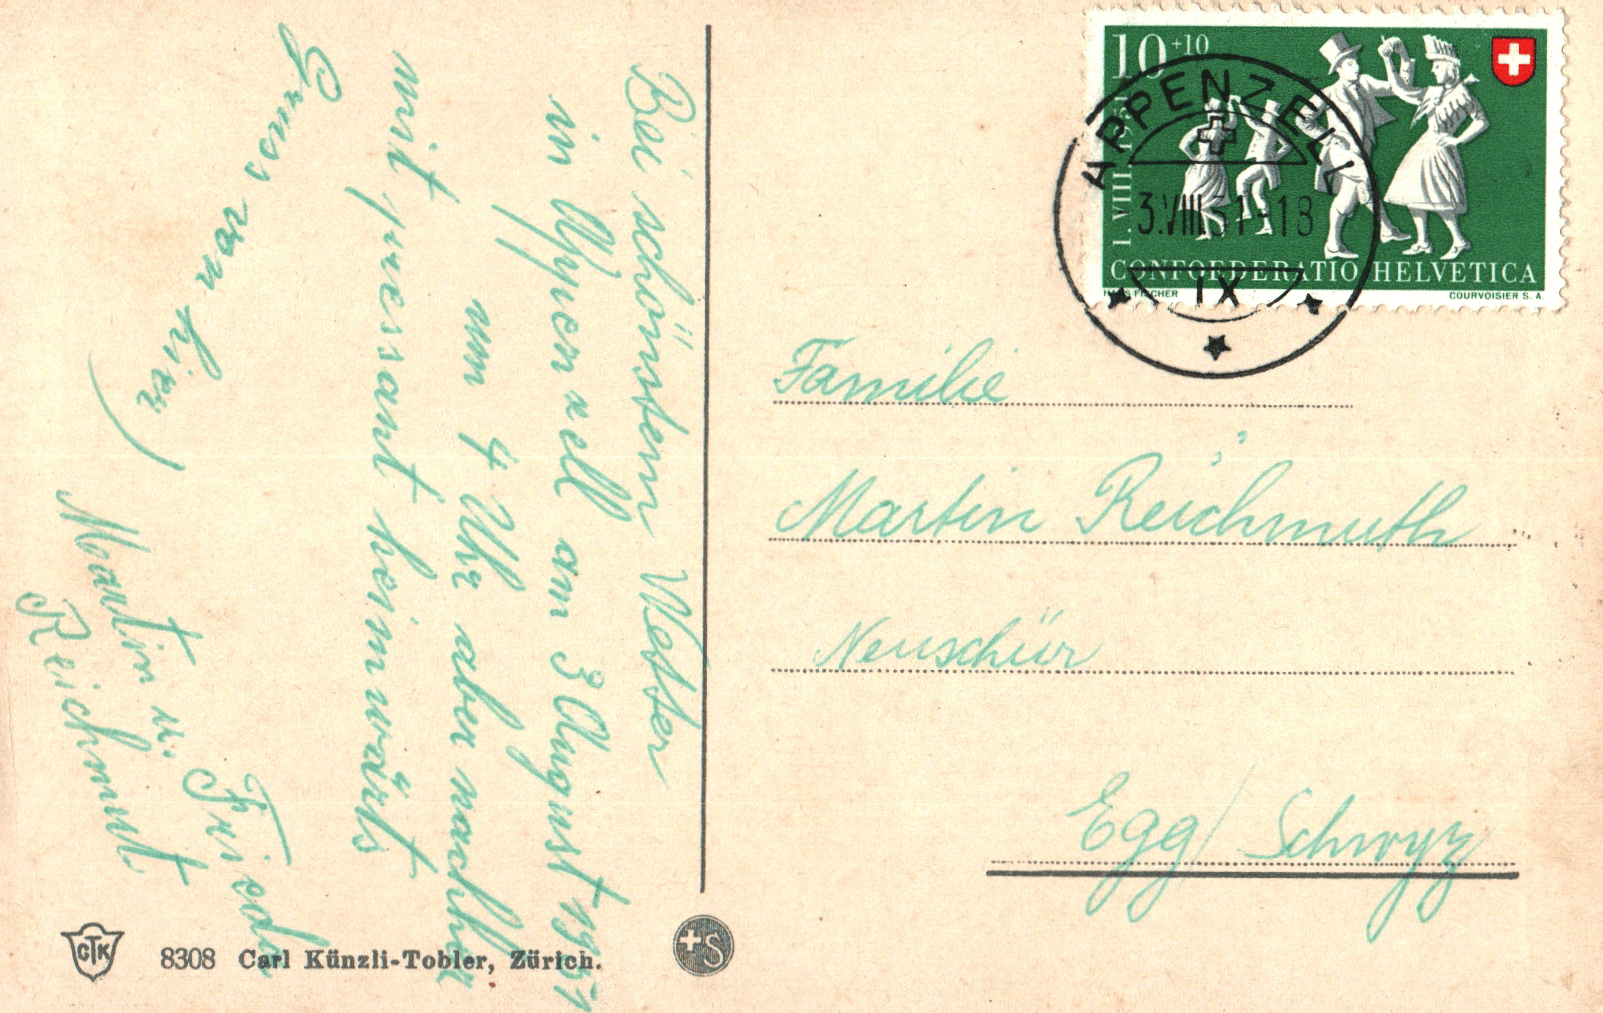 Bei schönstem Wetter
in Appenzell am 3 August 1951
um 4 Uhr aber nachher
mit pressant heimwärts
Gruss von hier
Martin u. Frieda
Reichmut
10+10
1.VIII.1951
CONFOEDERATIO HELVETICA
HANS FISCHER
COURVOISIER S. A.
APPENZELL
3.VIII.51-18
IX
Familie
Martin Reichmuth
Neuschür
Egg/Schwyz
CTK
8308 Carl Künzli-Tobler, Zürich.
+S